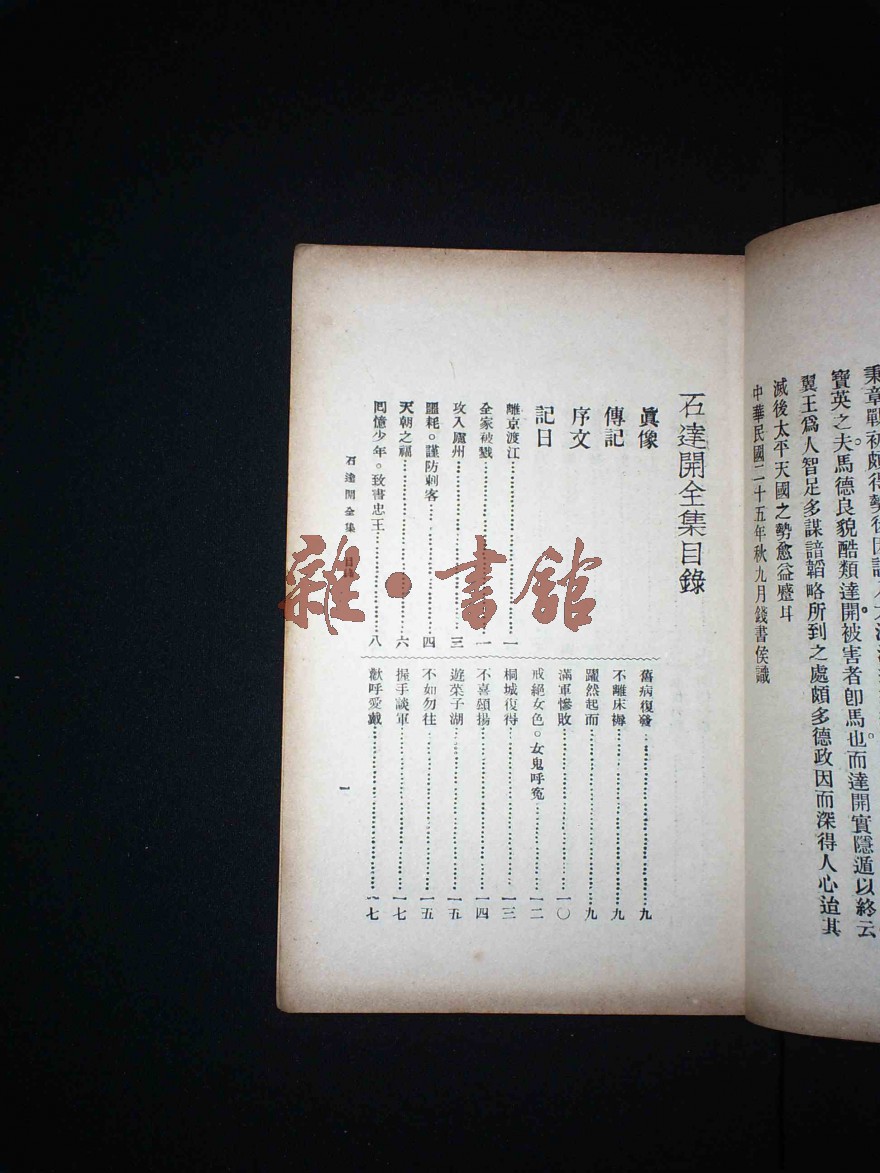 寶英之夫馬德良貌酷類達開被害者卽馬也。而達開實隱遁以終云
翼王爲人智足多謀諳韜略所到之處頗多德政因而深得人心迨其
滅後太平天國之勢愈益蹙耳
中華民國二十五年秋九月錢書侯識
石達開全集目錄
眞像
傳記
序文
記日
離京渡江…………一
全家被戮…………一
攻入廬州…………三
噩耗。謹防刺客…………四
天朝之禍…………六
回憶少年。致書忠王…………八
舊病復發…………九
不離床褥…………九
躍然起而…………九
滿軍慘敗…………一〇
戒絕女色。女鬼呼冤…………一二
桐城復得…………一三
不喜頌揚…………一四
遊菜子湖…………一五
不如勿往…………一五
握手談軍…………一七
歡呼愛戴…………一七
石達開全集 目錄
一
雜·書館